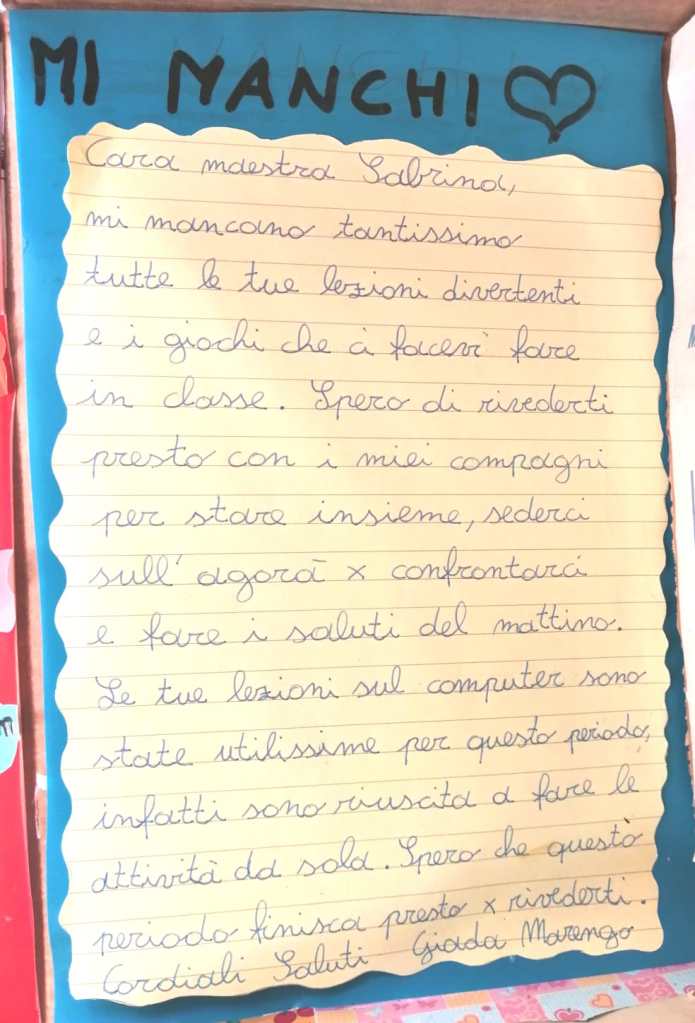 MI MANCHI
Cara maestra Sabrina,
mi mancano tantissimo
tutte le tue lezioni divertenti
e i giochi che ci facevi fare
in classe. Spero di rivederti
presto con i miei compagni
per stare insieme, sederci
sull'agorà x confrontarci
e fare i saluti del mattino.
Le tue lezioni sul computer sono
state utilissime per questo periodo,
infatti sono riuscita a fare le
attività da sola. Spero che questo
periodo finisca presto x rivederti.
Cordiali Saluti Giada Marengo